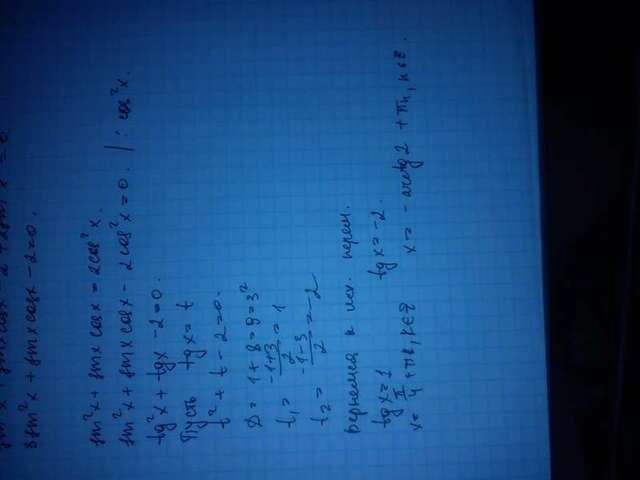 sin²x + sinxcosx - 2 + 2sin²x = 0
3sin²x + sinxcosx - 2 = 0.
sin²x + sinx cosx = 2cos²x.
sin²x + sinxcosx - 2cos²x = 0. | : cos²x.
tg²x + tgx - 2 = 0.
Пусть tgx = t
t² + t - 2 = 0.
D = 1 + 8 = 9 = 3²
t₁ = (-1+3)/2 = 1
t₂ = (-1-3)/2 = -2
Вернемся к исх. перем.
tgx = 1 tgx = -2.
x = π/4 + πk, k∈Z x = - arctg2 + πn, n∈Z.